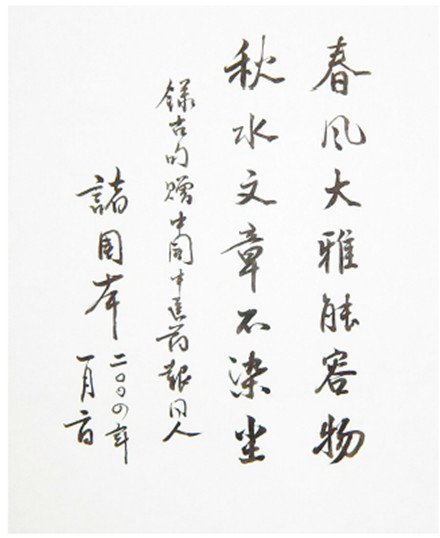 春风大雅能容物
秋水文章不染尘
錄古句赠中国中医药報同人
諸国本
二〇〇四年
一月